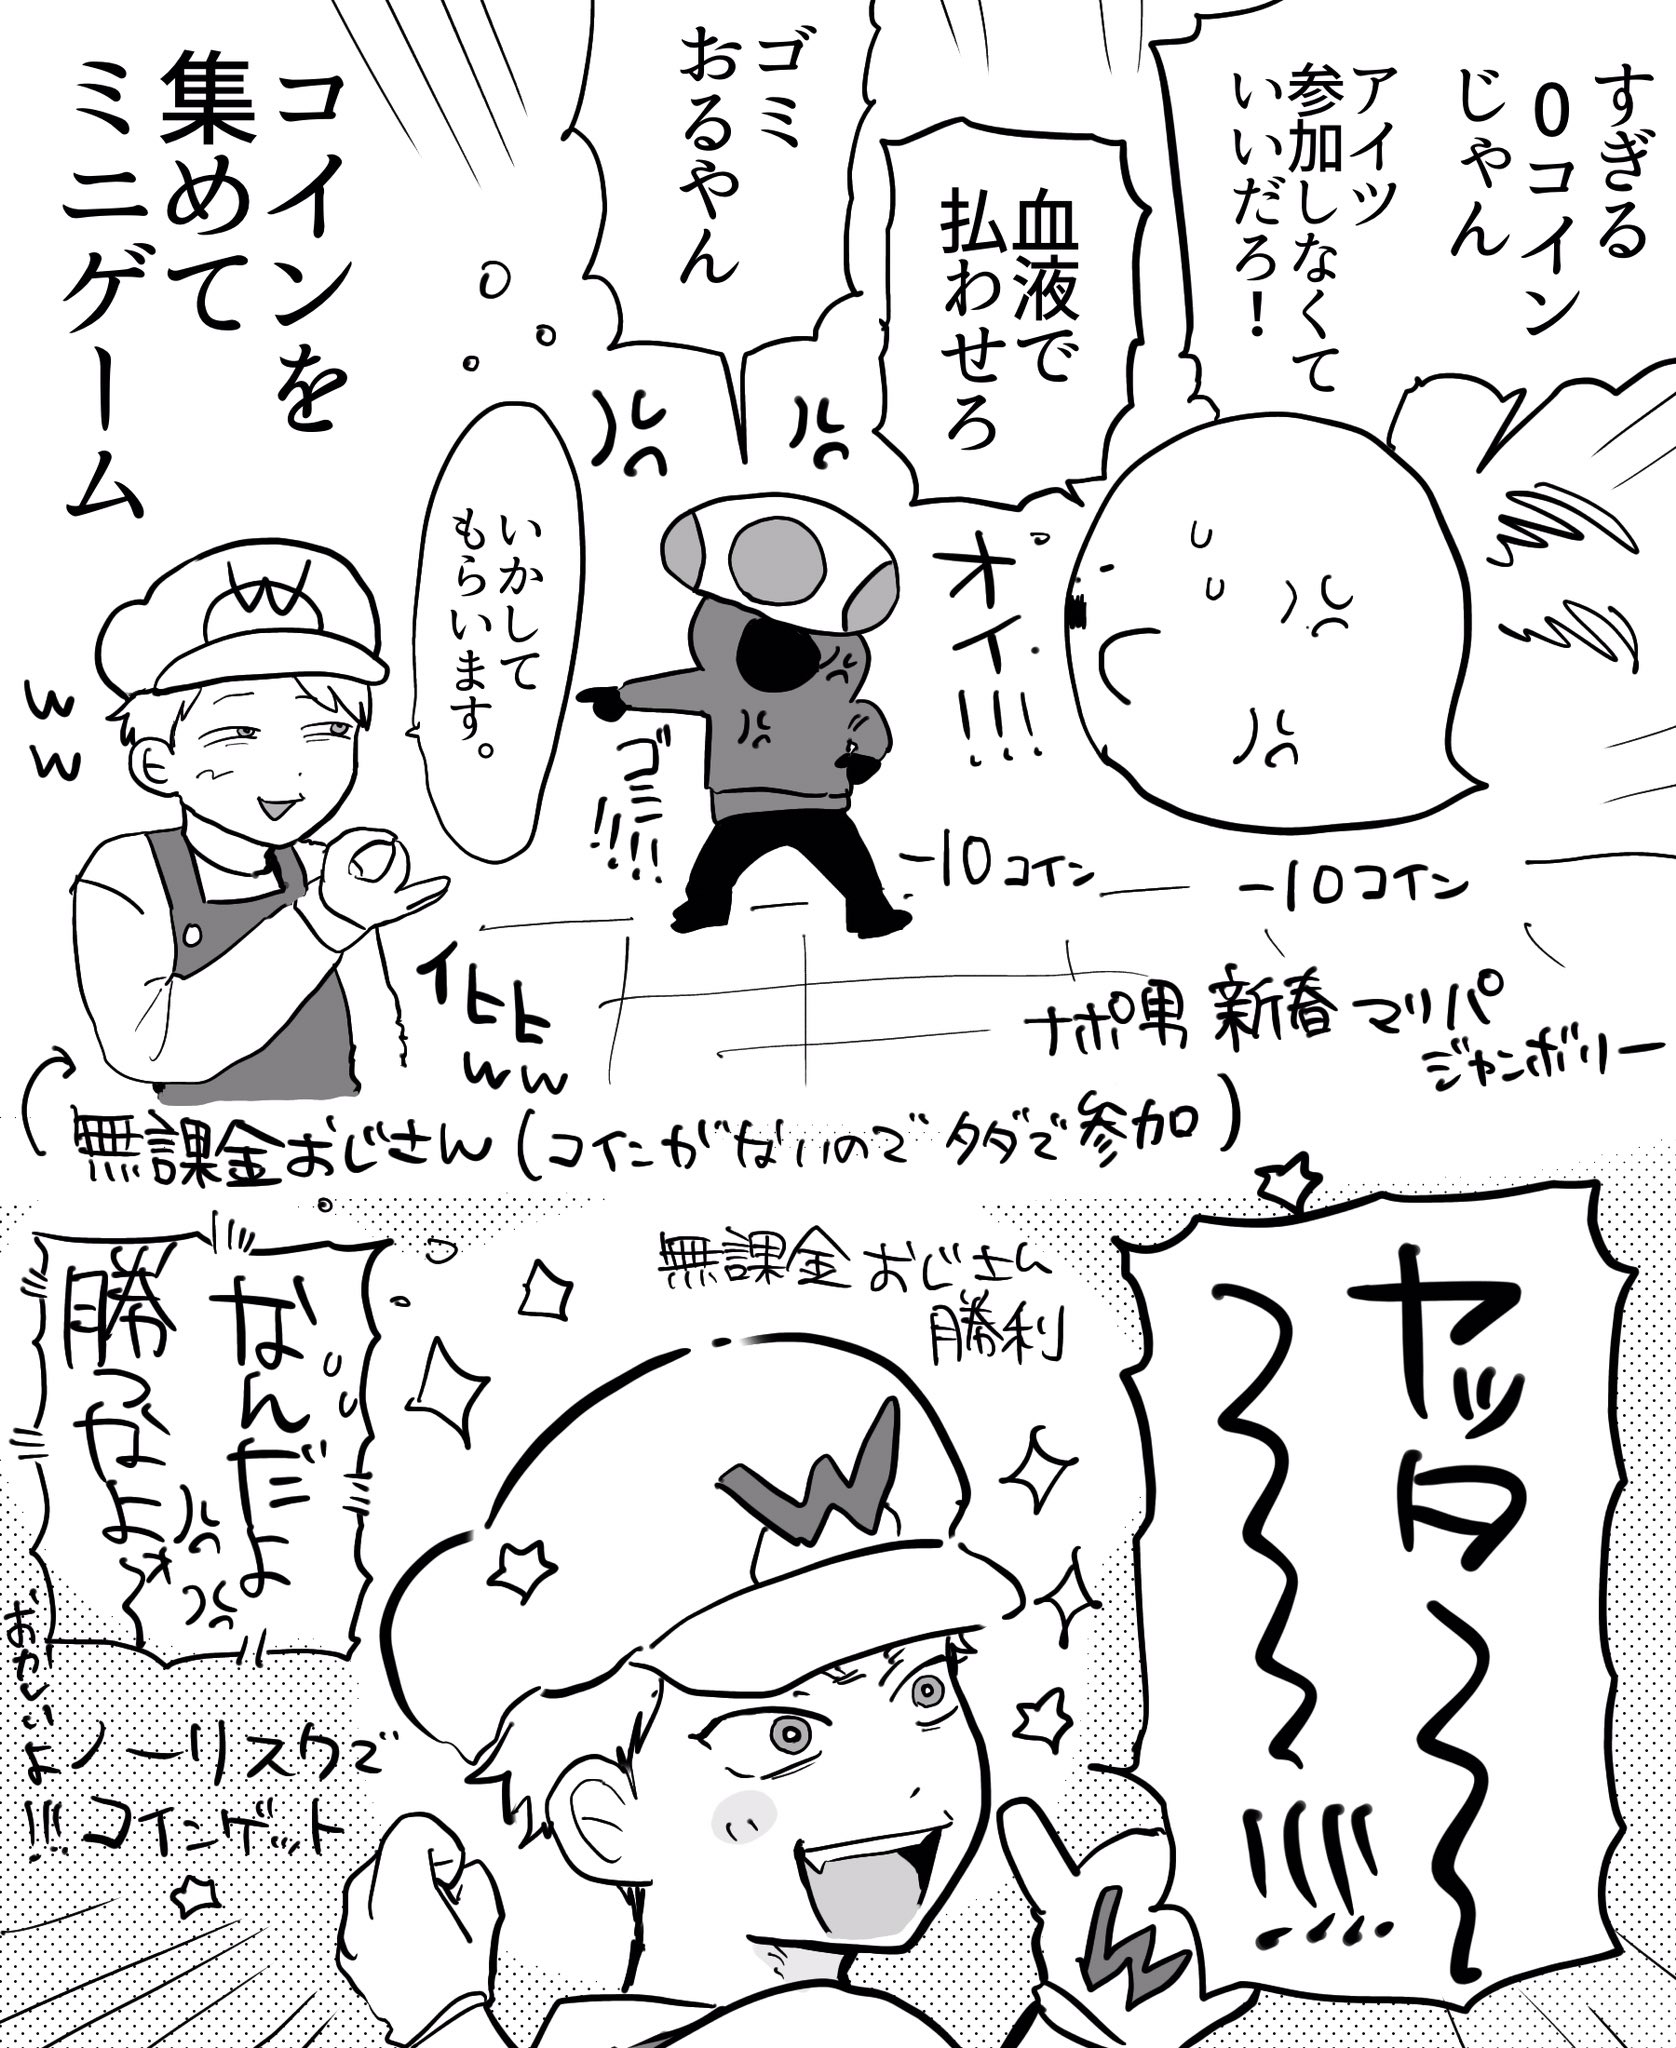 すぎる
0コイン
じゃん
アイツ
参加しなくて
いいだろ！
血液で
払わせろ
ゴミ
おるやん
コインを
集めて
ミニゲーム
いかして
もらいます。
オイ!!!
ゴミ!!!!
-10コイン
-10コイン
W
ww
イヒヒ
ww
ナポ男 新春マリパ
ジャンボリー
無課金おじさん(コインがないのでタダで参加)
ヤッタ〜
〜〜!!!!
無課金おじさん
勝利
W
W
なんだよ
勝つなよオ
おかしいよ!!!
ノーリスクで
コインゲット